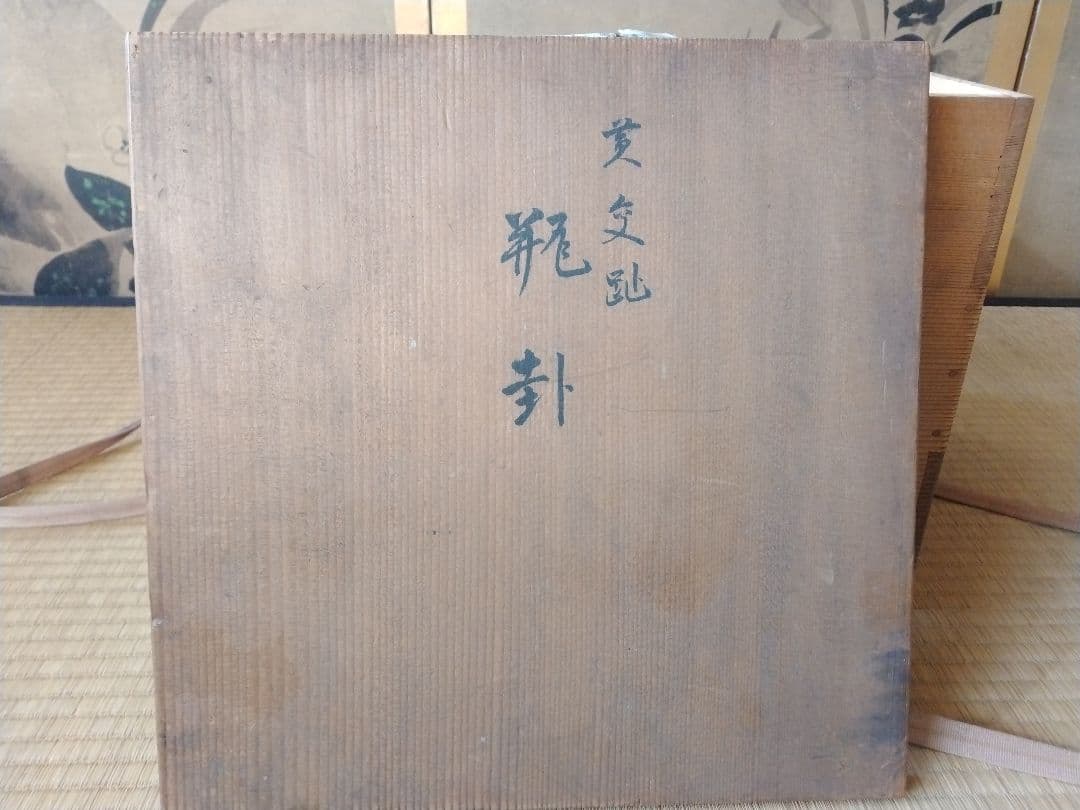 黄交趾
瓶卦